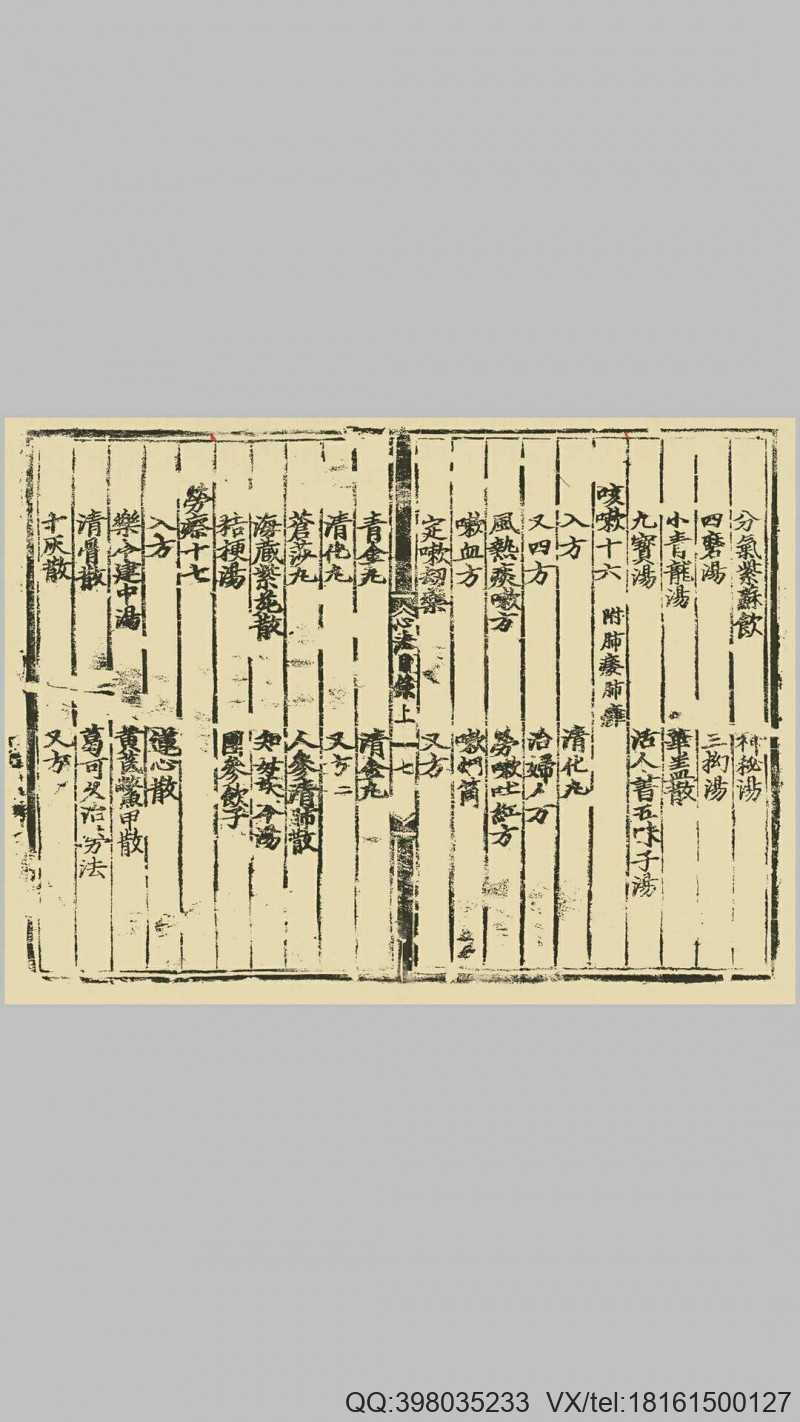 分氣紫蘇飲 神秘湯
四磨湯 三拗湯
小青龍湯 華蓋散
九寶湯 活人書五味子湯
咳嗽十六 附肺痿肺癰
入方 清化丸
又四方 治婦人方
風熱痰嗽方 勞嗽吐紅方
嗽血方 嗽烟筒
定嗽劫藥 又方
心法目錄上 十七
青金丸 清金丸
清化丸 又方二
蒼莎丸 人參清肺散
海藏紫菀散 知母茯苓湯
桔梗湯 團參飲子
勞瘵十七
入方 蓮心散
樂令建中湯 黃芪鱉甲散
清骨散 葛可久治勞法
十灰散 又方
QQ:398035233 VX/tel:18161500127